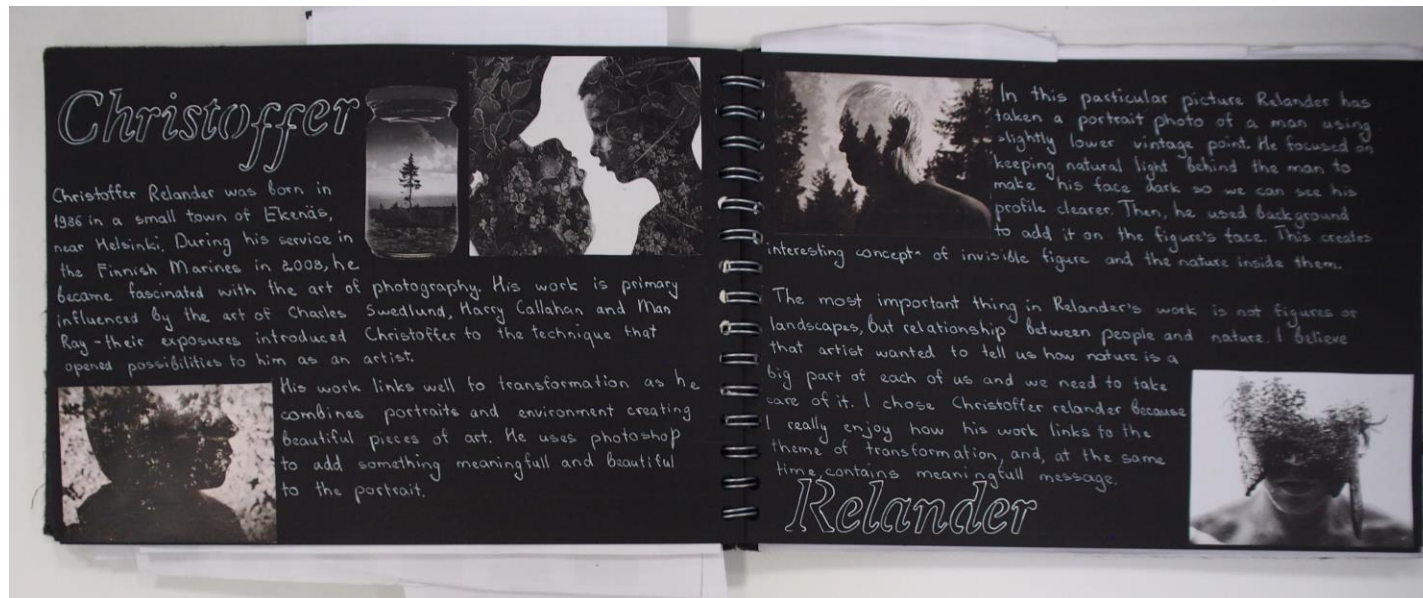 Christoffer
Christoffer Relander was born in
1986 in a small town of Ekenäs,
near Helsinki. During his service in
the Finnish Marines in 2008, he
became fascinated with the art of photography. His work is primary
influenced by the art of Charles Swedlund, Harry Callahan and Man
Ray - their exposures introduced Christoffer to the technique that
opened possibilities to him as an artist.
His work links well to transformation as he
combines portraits and environment creating
beautiful pieces of art. He uses photoshop
to add something meaningfull and beautiful
to the portrait.
In this particular picture Relander has
taken a portrait photo of a man using
slightly lower vintage point. He focused on
keeping natural light behind the man to
make his face dark so we can see his
profile clearer. Then, he used background
to add it on the figure's face. This creates
interesting concept of invisible figure and the nature inside them.
The most important thing in Relander's work is not figures or
landscapes, but relationship between people and nature. I believe
that artist wanted to tell us how nature is a
big part of each of us and we need to take
care of it. I chose Christoffer relander because
I really enjoy how his work links to the
theme of transformation, and, at the same
time, contains meaningfull message.
Relander